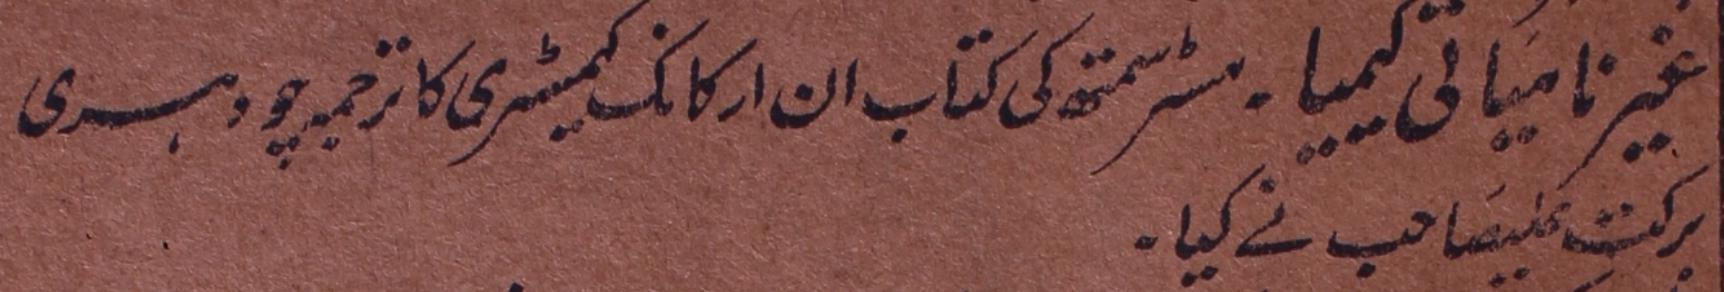 غیر نامیاتی کیمیا ۔ مسٹر سمتھ کی کتاب ان ارکانک کیمیسٹری کا ترجمہ چودہری
برکت علیصاحب نے کیا ۔